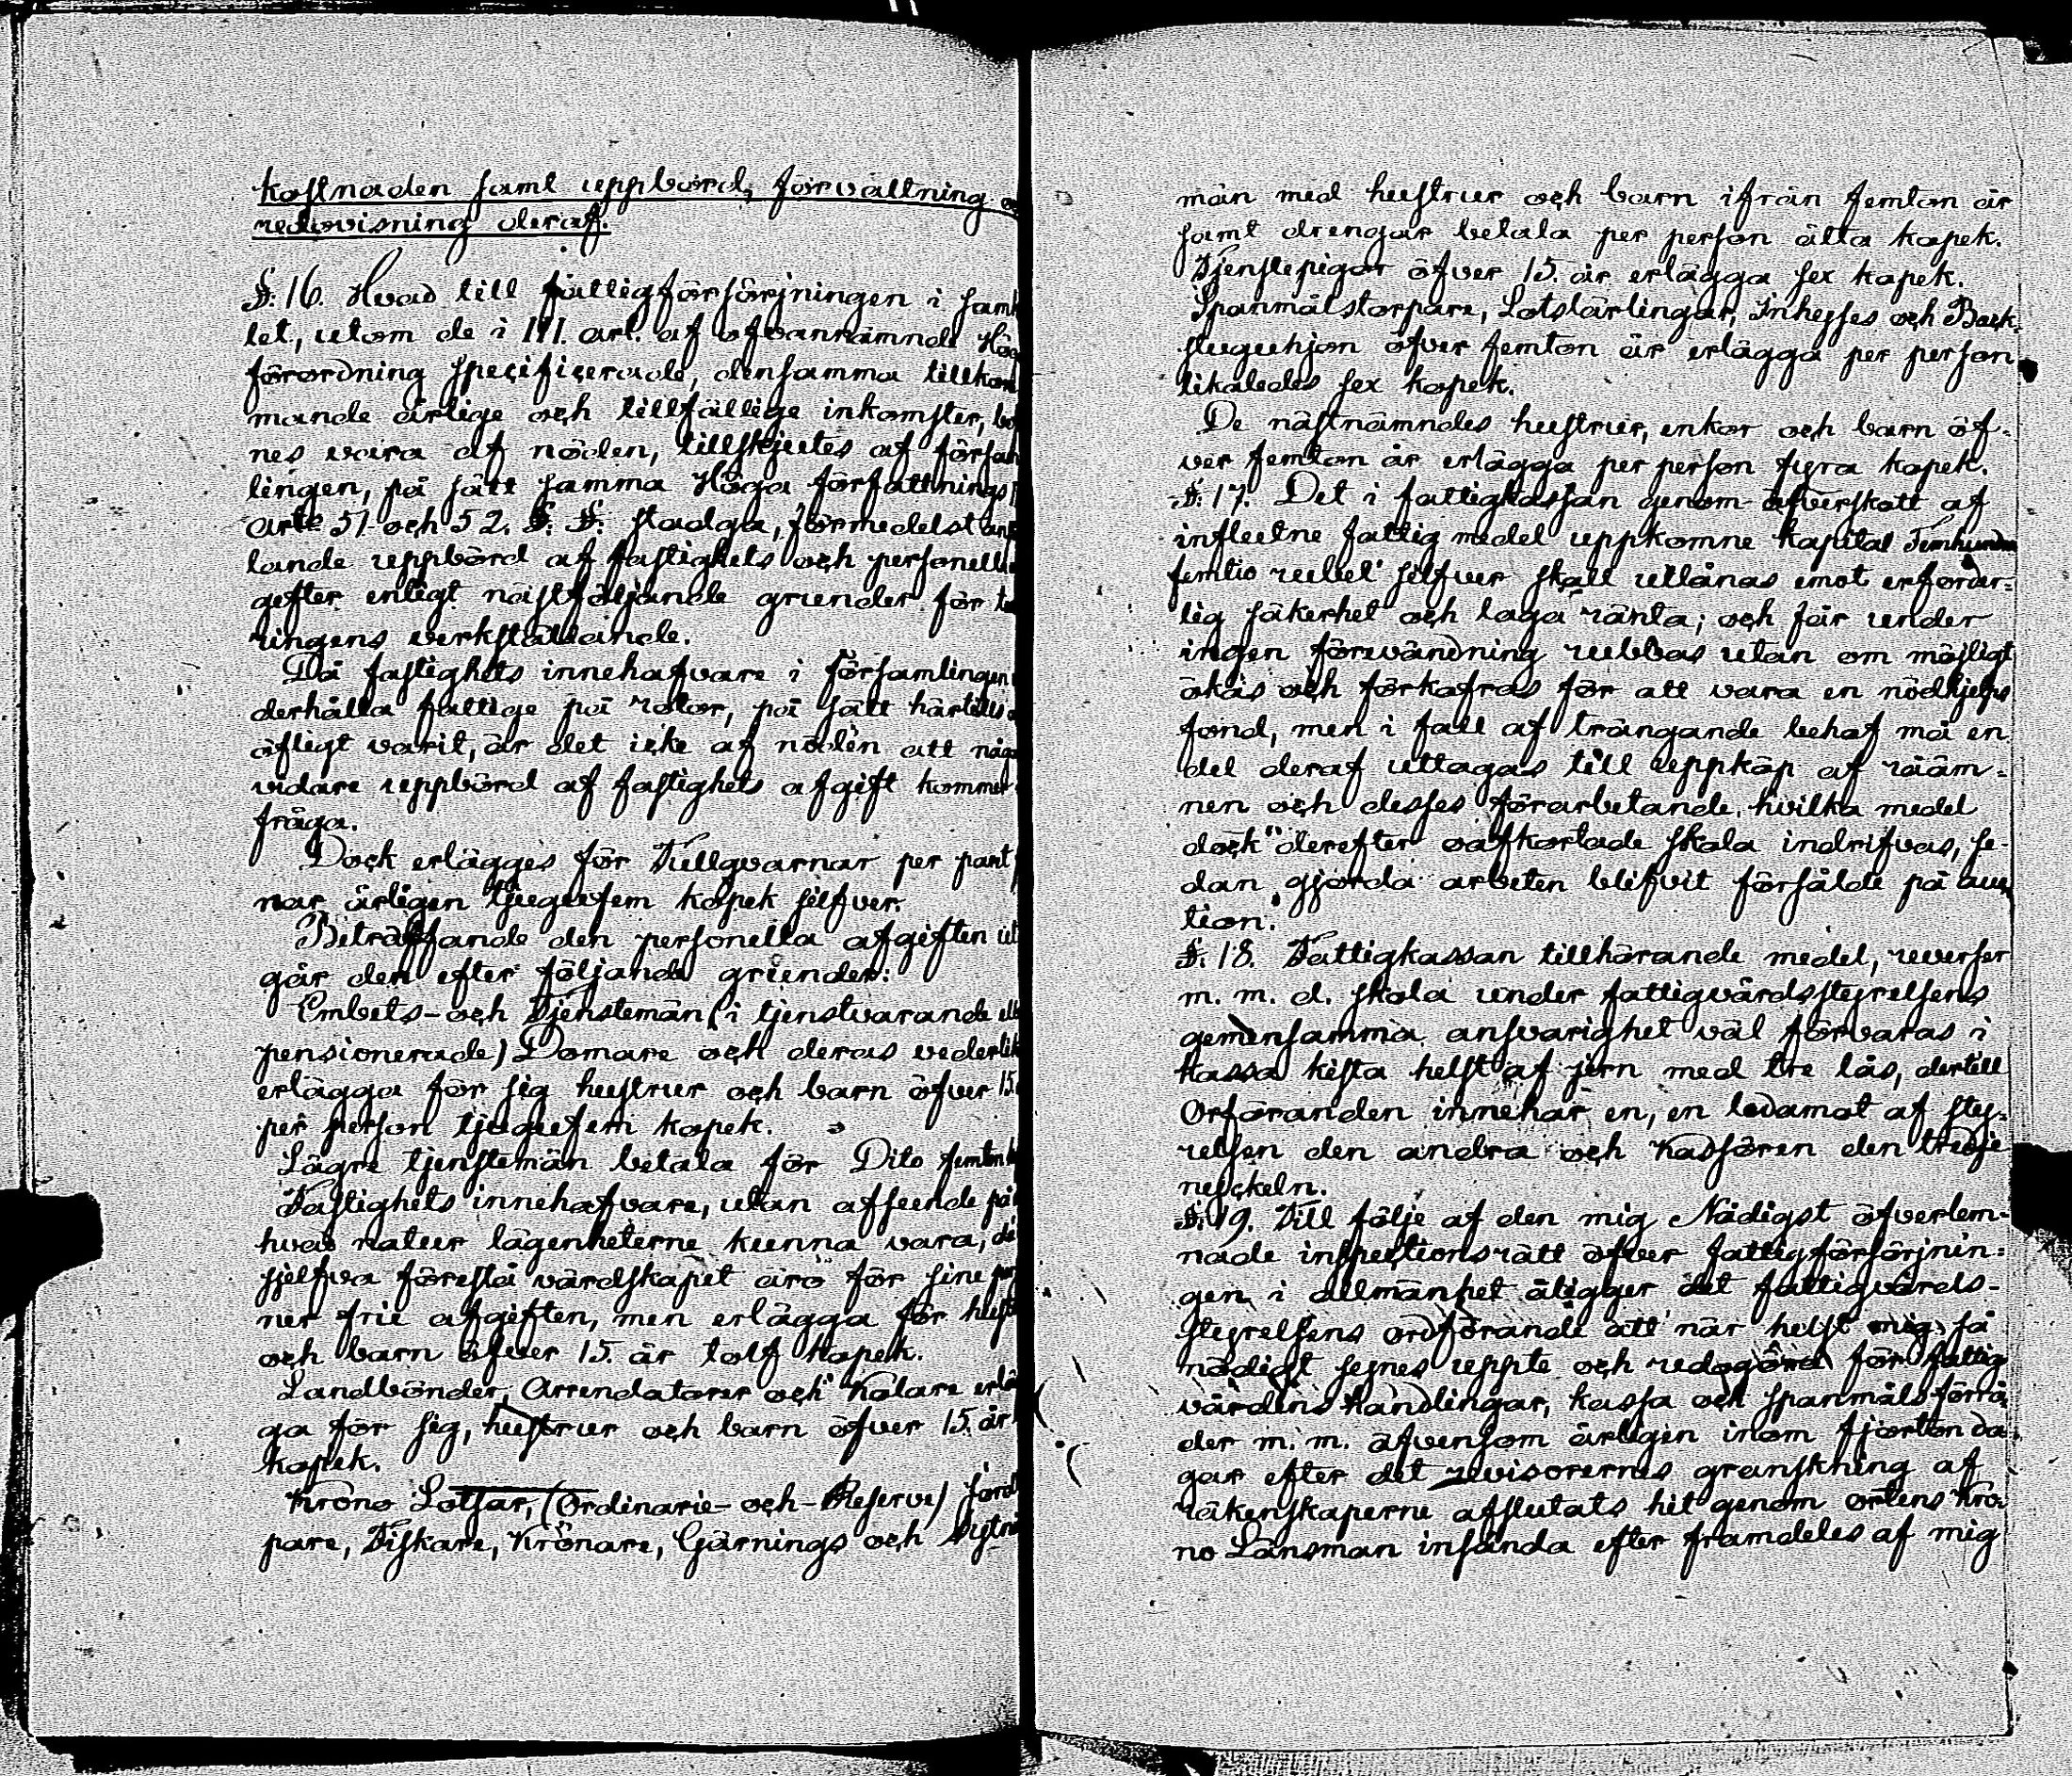 kostnaden samt uppbörd, förvaltning
redovisning deraf.
§. 16. Hvad till fattigförsörjningen i sam
let, utom de i III. art. af ofvannämnde Hög
förordning specificerade, densamma tillkom
mande årlige och tillfällige inkomster,
nes vara af nöden, tillskjutes af församl
lingen, på sätt samma Höga författnings
art: 51 och 52. §. §. stadga, förmedelst
lande uppbörd af fastighets och personelle
gifter enligt nästföljande grunder för
ringens verkställande.
Då fastighets innehafvare i församlingen
derhålla fattige på rotor, på sätt härtills
öfligt varit, är det icke af nöden att någo
vidare uppbörd af fastighets afgift kommer
fråga.
Dock erlägges för Tullqvarnar per par
nar årligen tjugufem kopek silfver.
Beträffande den personella afgiften ut
går den efter följande grunder:
Embets- och Tjenstemän (i tjenstvarande ell
pensionerade) Domare och deras vederlik
erlägga för sig hustrur och barn öfver 15.
per person tjugufem kopek.
Lägre tjenstemän betala för Dito femton
Fastighets innehafvare, utan afseende på
hvad natur lägenheterne kunna vara, då
sjelfva förestå värdskapet äro för sine per
ner frie afgiften, men erlägga för hust
och barn öfver 15. år tolf kopek.
Landbönder, Arrendatorer och Kolare erlä
ga för sig, hustrur och barn öfver 15. år
kopek.
Krono Lotsar, (Ordinarie- och Reserve) Jord
pare, Fiskare, Krönare, Gärnings och Sytni
män med hustrur och barn ifrån femton år
samt drengar betala per person åtta kopek.
Tjenstepigor öfver 15. år erlägga sex kopek.
Spanmålstorpare, Lotslärlingar, Inhyses och Back-
stuguhjon öfver femton år erlägga per person
likaledes sex kopek.
De nästnämndes hustrur, enkor och barn öf-
ver femton år erlägga per person fyra kopek.
§. 17. Det i fattigkassan genom öfverskott af
influtne fattig medel uppkomne kapital Femhundra
femtio rubel silfver skall utlånas emot erforder-
lig säkerhet och laga ränta; och får under
ingen förevändning rubbas utan om möjligt
ökas och förkofras för att vara en nödhjelps
fond, men i fall af trängande behof må en
del deraf uttagas till uppköp af rääm-
nen och desses förarbetande, hvilka medel
dock derefter oafkortade skola indrifvas, se-
dan gjorda arbeten blifvit försålde på auc
tion.
§. 18. Fattigkassan tillhörande medel, reverser
m. m. d. skola under fattigvårdsstyrelsens
gemensamma ansvarighet väl förvaras i
kassa kista helst af jern med tre lås, dertill
Orföranden innehar en, en ledamot af sty-
relsen den andra och Kassören den tredje
nyckeln.
§. 19. Till följe af den mig Nådigst öfverlem-
nade inspectionsrätt öfver fattigförsörjnin-
gen i allmänhet åligger det fattigvårds-
styrelsens ordförande att när helst mig så
nödigt synes uppte och redogöra för fattig
vårdens handlingar, kassa och spanmåls förrå
der m. m. äfvensom årligen inom fjorton da-
gar efter det revisorernes granskning af
räkenskaperne afslutats hit genom ortens Kro-
no Länsman insända efter framdeles af mig